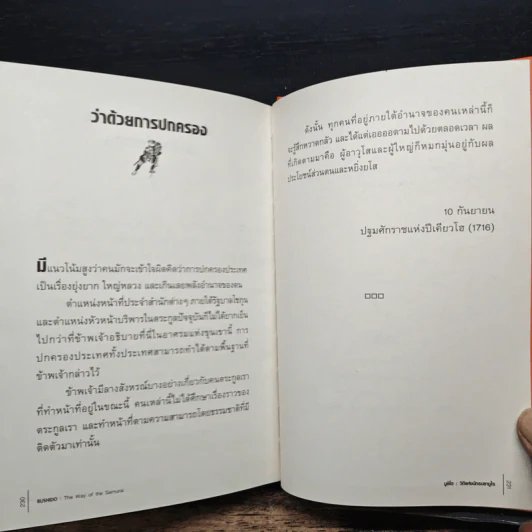 ว่าด้วยการปกครอง
มีแนวโน้มสูงว่าคนมักจะเข้าใจผิดคิดว่าการปกครองประเทศ
เป็นเรื่องยุ่งยาก ใหญ่หลวง และเกินเลยพลังอำนาจของตน
ตำแหน่งหน้าที่ประจำสำนักต่างๆ ภายใต้รัฐบาลโชกุน
และตำแหน่งหัวหน้าบริหารในตระกูลปัจจุบันก็ไม่ได้ยากเย็น
ไปกว่าที่ข้าพเจ้าอธิบายที่นี่ในอาศรมแห่งขุนเขานี้ การ
ปกครองประเทศทั้งประเทศสามารถทำได้ตามพื้นฐานที่
ข้าพเจ้ากล่าวไว้
ข้าพเจ้ามีลางสังหรณ์บางอย่างเกี่ยวกับคนตระกูลเรา
ที่ทำหน้าที่อยู่ในขณะนี้ คนเหล่านี้ไม่ได้ศึกษาเรื่องราวของ
ตระกูลเรา และทำหน้าที่ตามความสามารถโดยธรรมชาติที่มี
ติดตัวมาเท่านั้น
230 BUSHIDO : The Way of the Samurai
ดังนั้น ทุกคนที่อยู่ภายใต้อำนาจของคนเหล่านี้ก็
จะรู้สึกหวาดกลัว และได้แต่เออออตามไปด้วยตลอดเวลา ผล
ที่เกิดตามมาคือ ผู้อาวุโสและผู้ใหญ่ก็หมกมุ่นอยู่กับผล
ประโยชน์ส่วนตนและหยิ่งยโส
10 กันยายน
ปฐมศักราชแห่งปีเคียวโฮ (1716)
บูชิโด : วิถีแห่งนักรบซามูไร 231